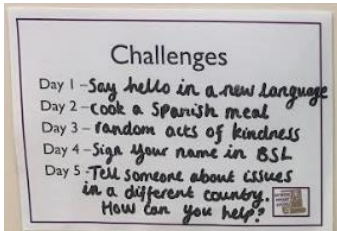 Challenges
Day 1 - Say hello in a new language
Day 2 - Cook a Spanish meal
Day 3 - random acts of kindness
Day 4 - Sign your name in BSL
Day 5 - Tell someone about issues
in a different country.
How can you help?